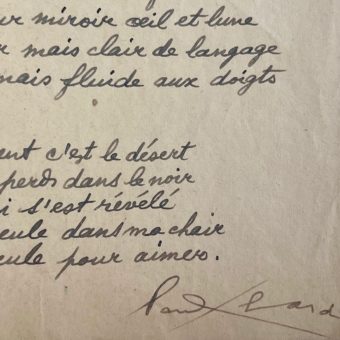 ur miroir œil et lune
r mais clair de langage
mais fluide aux doigts
ent c'est le désert
perds dans le noir
i s'est révélé
eule dans ma chair
eule pour aimer.
Paul Eluard